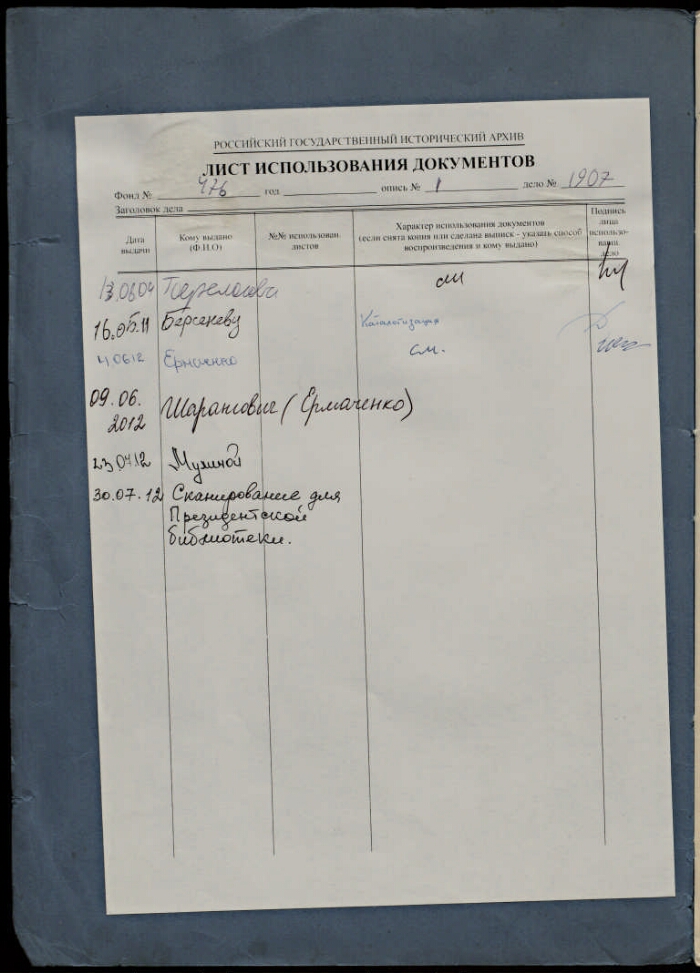 РОССИЙСКИЙ ГОСУДАРСТВЕННЫЙ ИСТОРИЧЕСКИЙ АРХИВ
ЛИСТ ИСПОЛЬЗОВАНИЯ ДОКУМЕНТОВ
Фонд № 476 год опись № 1 дело № 1907
Заголовок дела
Дата выдачи
Кому выдано (Ф.И.О)
№№ использован. листов
Характер использования документов (если снята копия или сделана выписк - указать способ воспроизведения и кому выдано)
Подпись лица использо- дело
13.06.04
16.05.11 Берсеневу Каталогизация
Ермаченко см.
09.06.
2012 Шарангович (Ермаченко)
23.07.12
30.07.12 Сканирование для
Президентской
библиотеки.